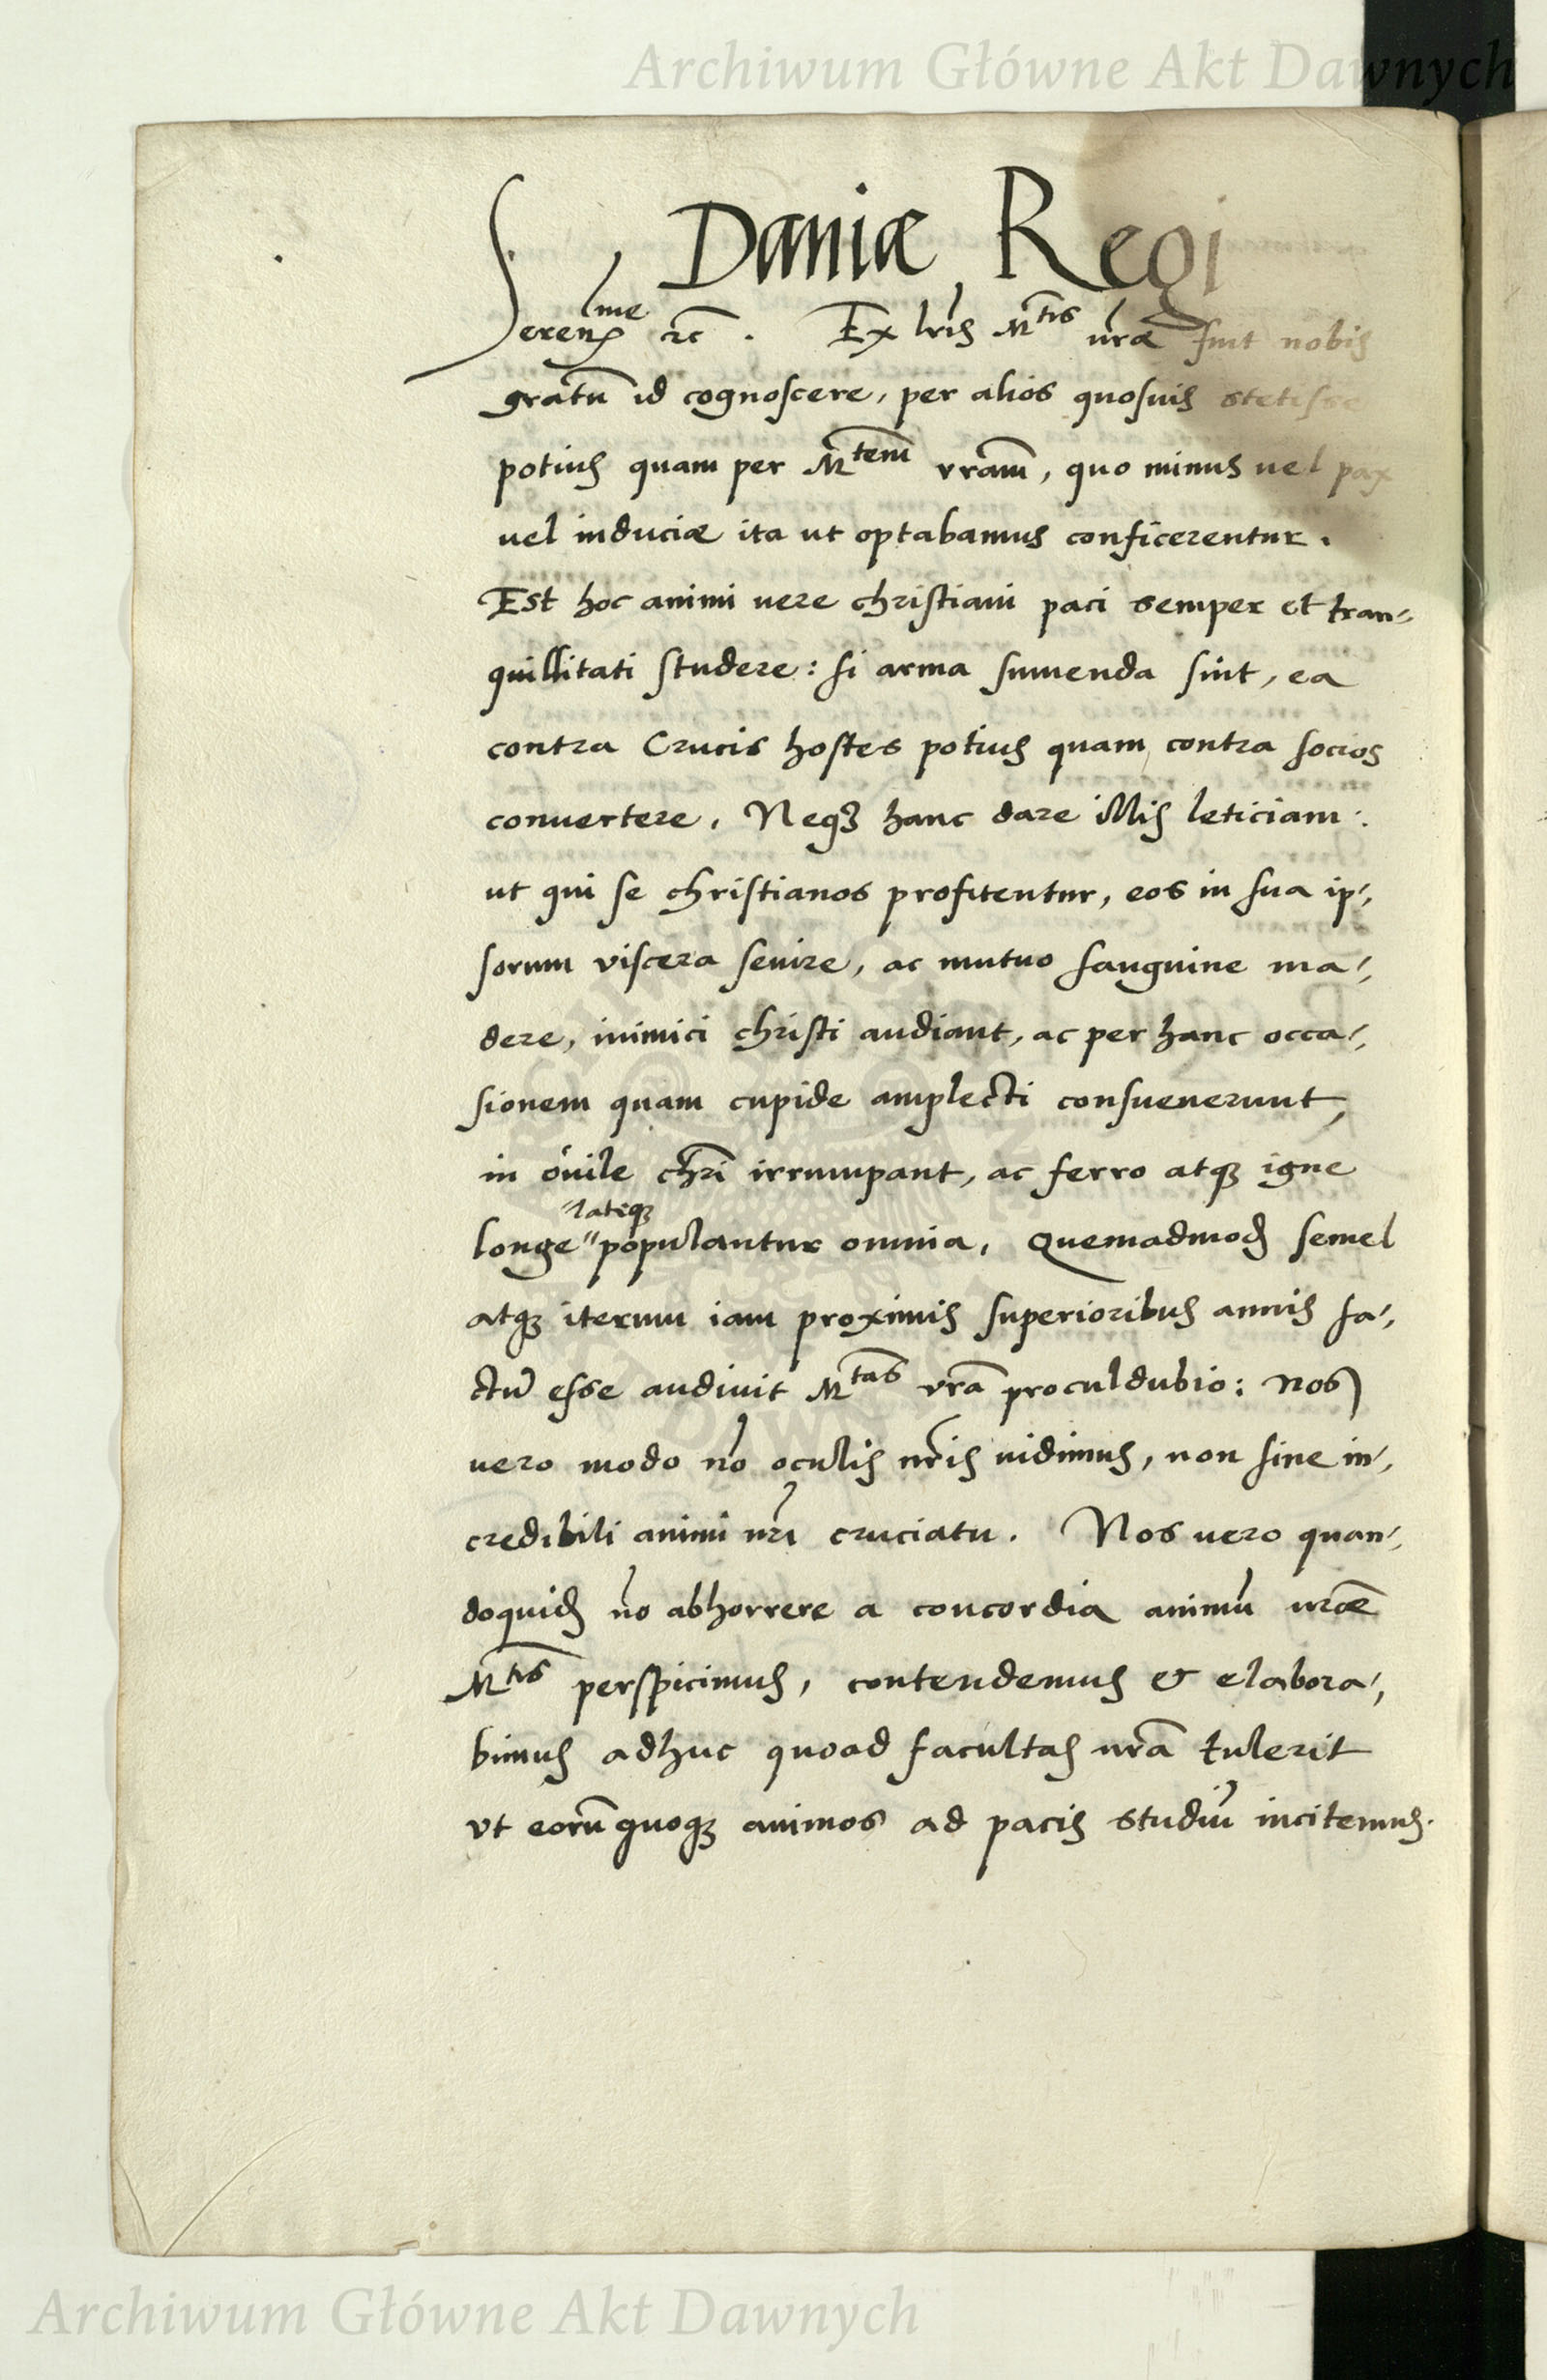 Archiwum Główne Akt Dawnych
Daniæ Regi
Serenꝭme ꝛc. Ex lr̃is Mtis vr̃æ fuit nobis
gratũ id cognoscere, per alios quosuis stetisse
potius quam per Mtem vram̃, quo minus uel pax
uel induciæ ita ut optabamus conficerentur.
Est hoc animi uere christiani paci semper et tran-
quillitati studere: si arma sumenda sint, ea
contra Crucis hostes potius quam contra socios
conuertere, Neqꝫ hanc dare illis leticiam:
ut qui se christianos profitentur, eos in sua ip-
sorum viscera seuire, ac mutuo sanguine ma-
dere, inimici christi audiant, ac per hanc occa-
sionem quam cupide amplecti consueuerunt,
in ouile chr̃i irrumpant, ac ferro atqꝫ igne
longe "lateqꝫ populantur omnia, Quemadmod̃ semel
atqꝫ iterum iam proximis superioribus annis fa-
ctũ esse audiuit Mtas vrã proculdubio: Nos
uero modo nõ oculis nr̃is uidimus, non sine in-
credibili animi nr̃i cruciatu. Nos uero quan-
doquid̃ nõ abhorrere a concordia animũ vræ̃
Mtis perspicimus, contendemus & elabora-
bimus adhuc quoad facultas nrã tulerit
vt eorũ quoqꝫ animos ad pacis studiũ incitemus.
Archiwum Główne Akt Dawnych